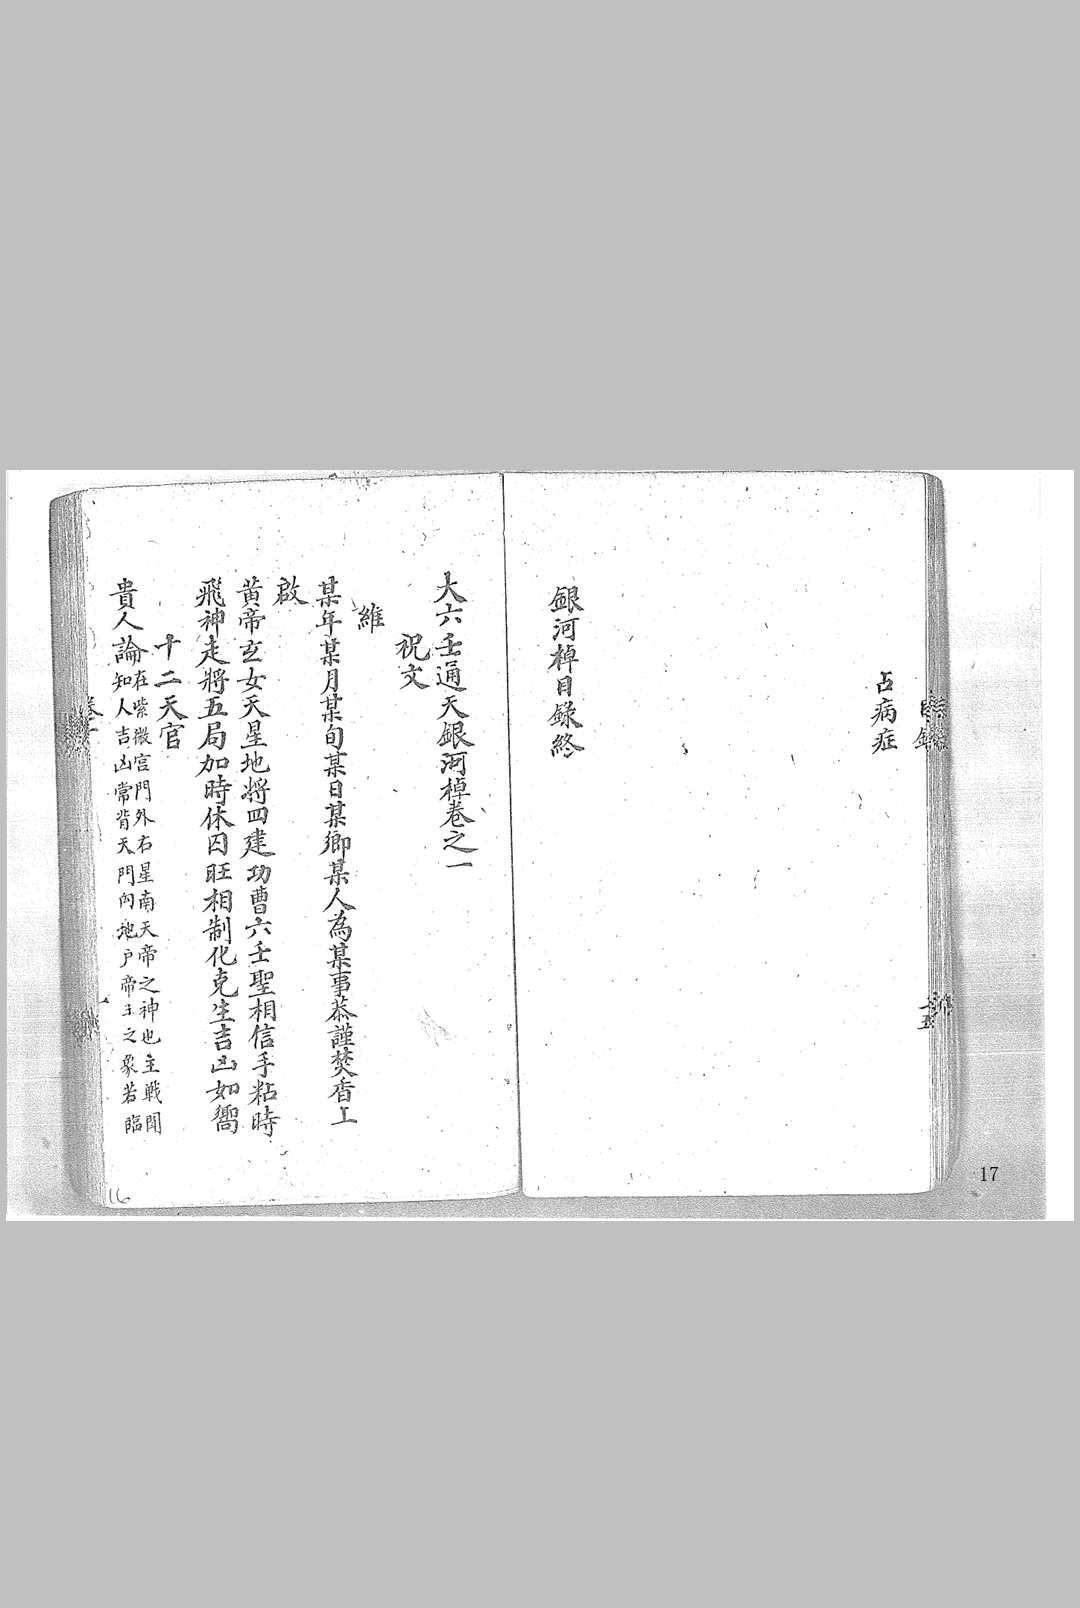 占病症
銀河棹目錄終
大六壬通天銀河棹卷之一
祝文
維
某年某月某旬某日某鄉某人為某事恭謹焚香上
啟
黃帝玄女天星地將四建功曹六壬聖相信手粘時
飛神走將五局加時休囚旺相制化克生吉凶如嚮
十二天官
貴人論在紫微宮門外右星南天帝之神也主戰鬪
知人吉凶常背天門向地户帝王之象若臨
16
17